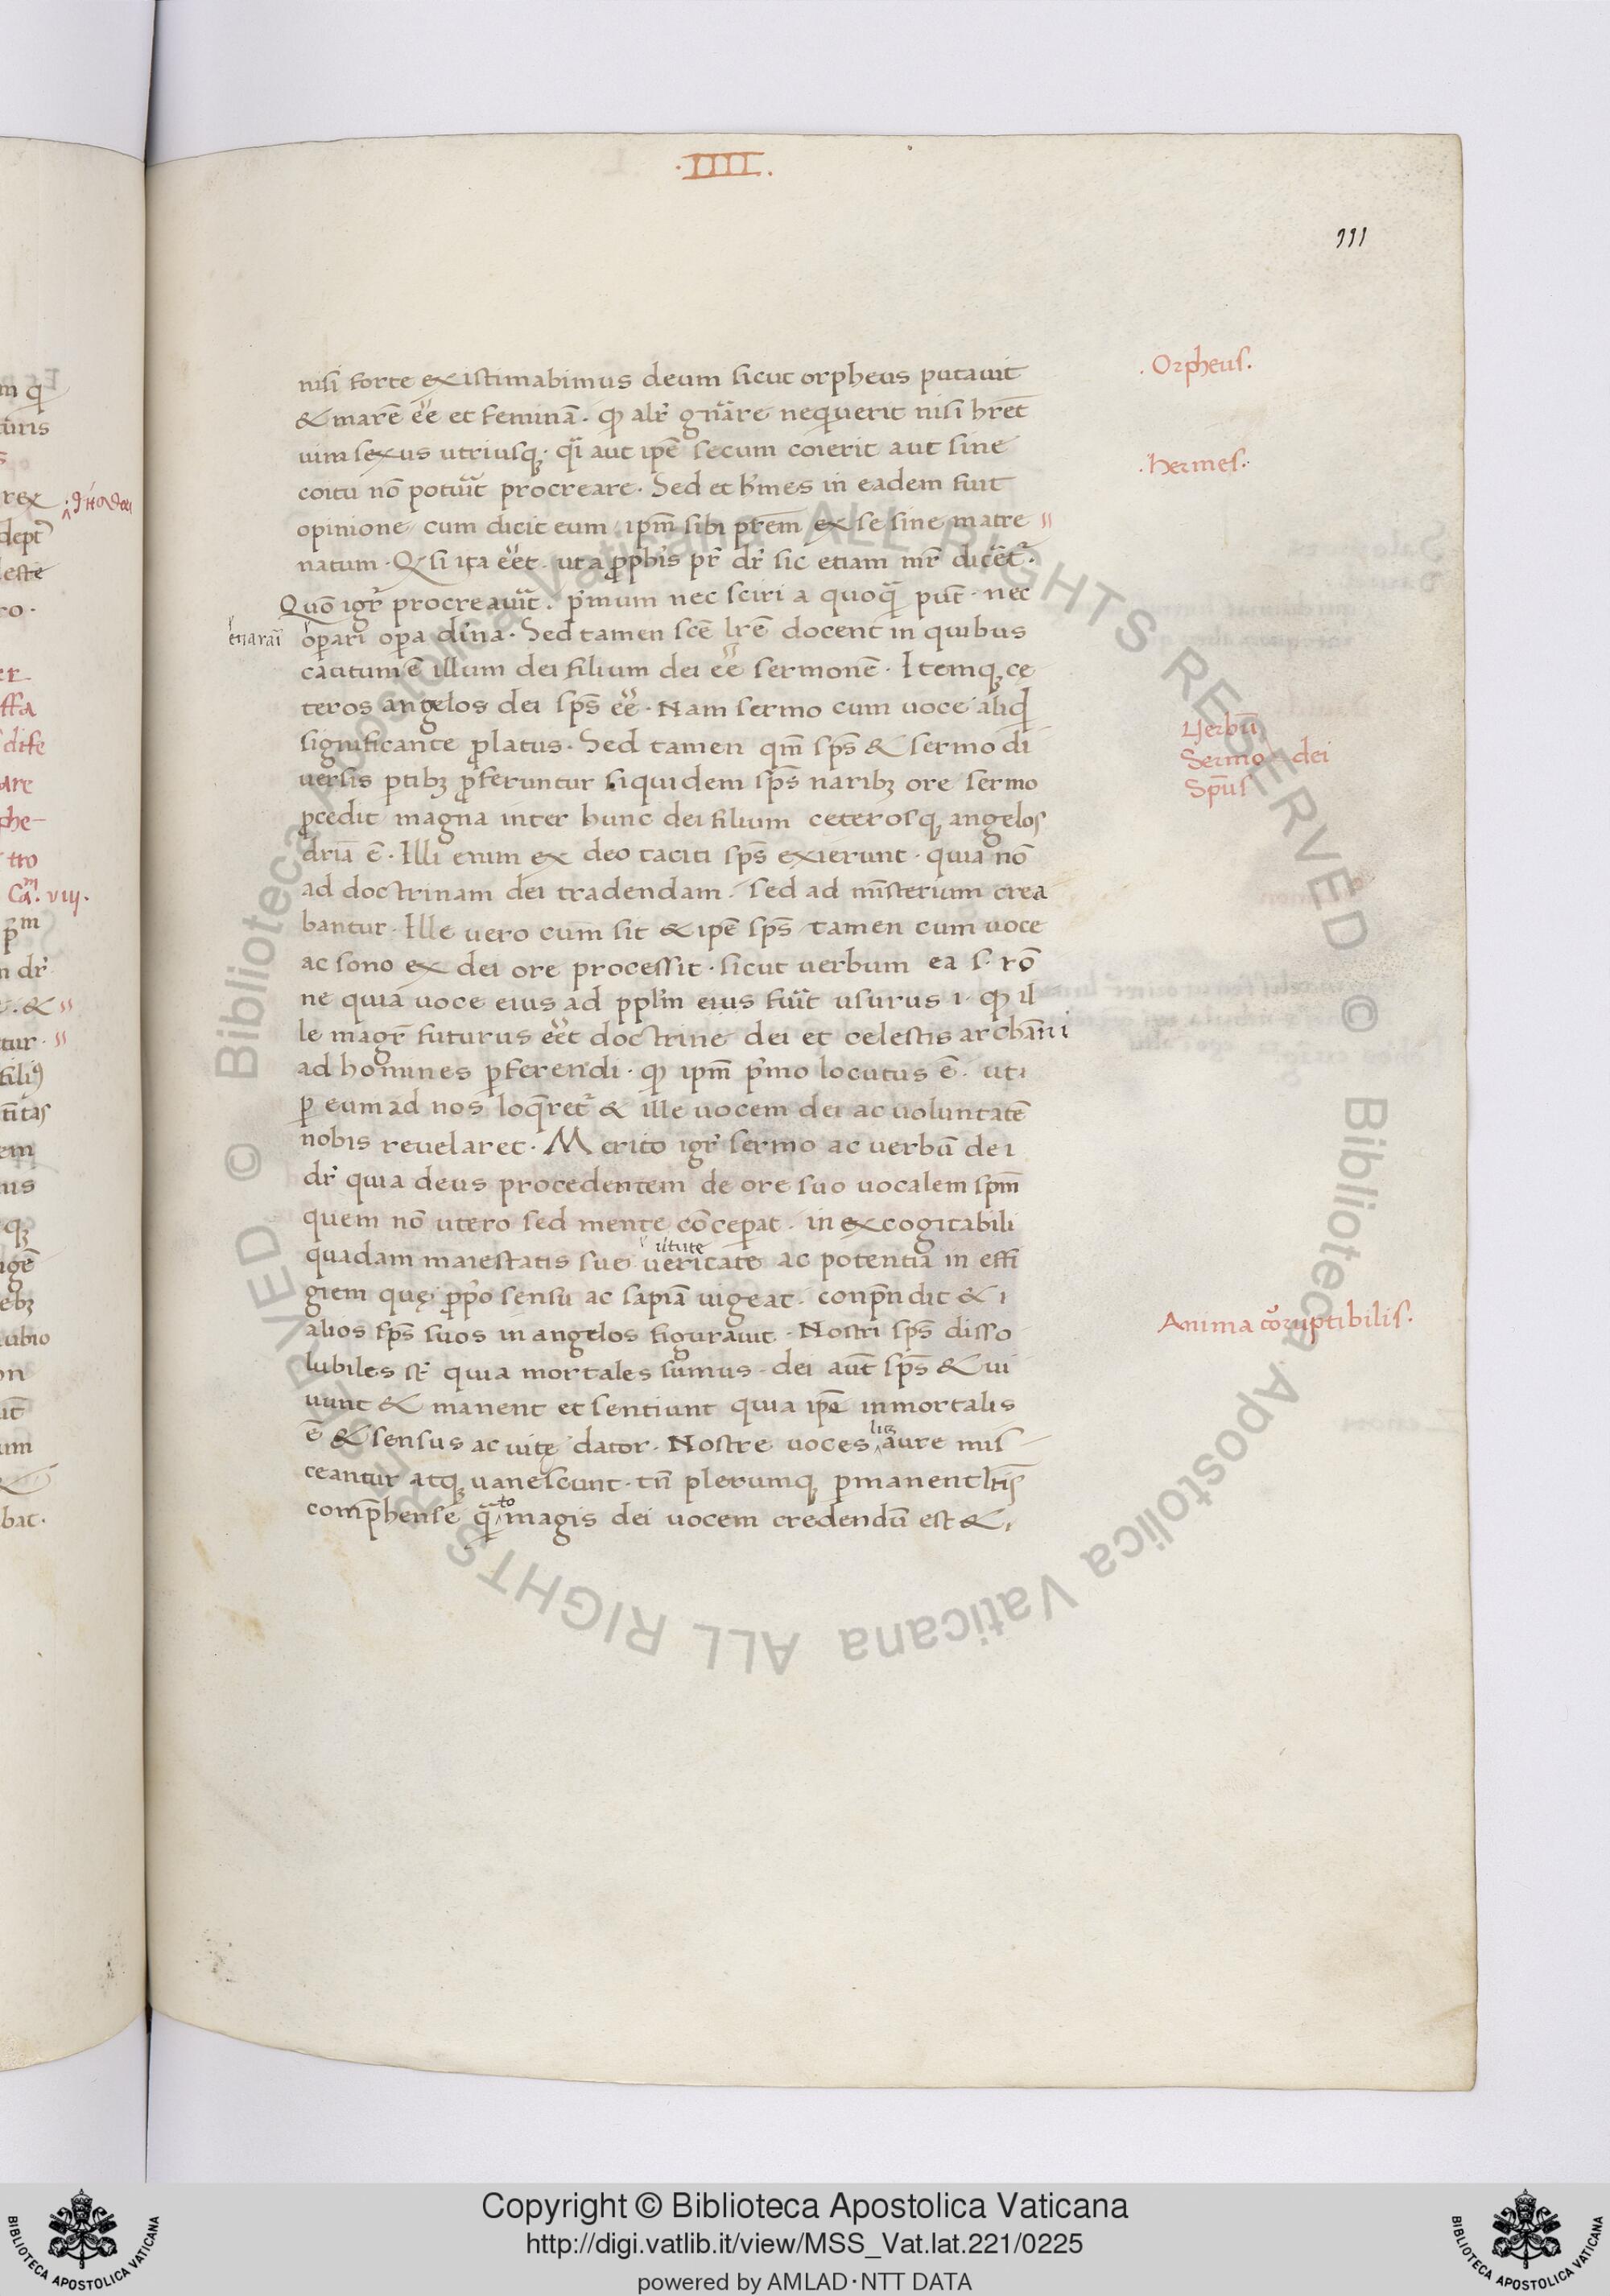 ·IIII.
111
nisi forte existimabimus deum sicut orpheus putauit
& marē ēē et feminā. qđ alr̄ gnāre nequerit nisi hrēt
uim sexus utriusq; q̄i aut ipē secum coierit aut sine
coitu nō potuit procreare. Sed et hmes in eadem fuit
opinione cum dicit eum ipm̄ sibi prēm ex se sine matre
natum. Q si ita ēēt. ut a prophis pr̄ dr̄ sic etiam mr̄ dicēt.
Quō igr̄ procreauit. pmum nec sciri a quoq̄ pūt. nec
enarari
opari opa diīna. Sed tamen scē lrē docent in quibus
cautum ē illum dei filium dei ēē sermonē. Itemq; cę
teros angelos dei sps̄ ēē. Nam sermo cum uoce aliqd
significante platus. Sed tamen qm̄ sps̄ & sermo di
uersis ptib; pferuntur siquidem sps̄ narib; ore sermo
pcedit magna inter hunc dei filium ceterosq; angelos
dr̄ia ē. Illi enim ex deo taciti sps̄ exierunt. quia nō
ad doctrinam dei tradendam. sed ad mīsterium crea
bantur. Ille uero cum sit & ipē sps̄ tamen cum uoce
ac sono ex dei ore processit. sicut uerbum ea s. rō
ne quia uoce eius ad pplm̄ eius fūit usurus .i. qđ il
le magr̄ futurus ēēt doctrine dei et celestis archāni
ad homines pferendi. qđ ipm̄ pmo locutus ē. uti
p eum ad nos loq̄ret̄ & ille uocem dei ac uoluntatē
nobis reuelaret. Merito igr̄ sermo ac uerbū dei
dr̄ quia deus procedentem de ore suo uocalem spm̄
quem nō utero sed mente cōcepat. inexcogitabili
quadam maiestatis sue ueritate ac potentia in effi
uirtute
giem quę pprio sensu ac sapiā uigeat. conpn̄dit & i
alios sps̄ suos in angelos figurauit. Nostri sps̄ disso
lubiles st̄ quia mortales sumus. dei aūt sps̄ & ui
uunt & manent et sentiunt quia ipē inmortalis
ē & sensus ac uitę dator. Nostre uoces lic; aure mis
ceantur atq; uanescunt. tn̄ plerumq; pmanent lris
comphense q̄to magis dei uocem credendū est &
·Orpheus.
·hermes.
Uerbū
Sermo dei
Spūs
Anima corruptibilis.
Copyright © Biblioteca Apostolica Vaticana
http://digi.vatlib.it/view/MSS_Vat.lat.221/0225
powered by AMLAD·NTT DATA